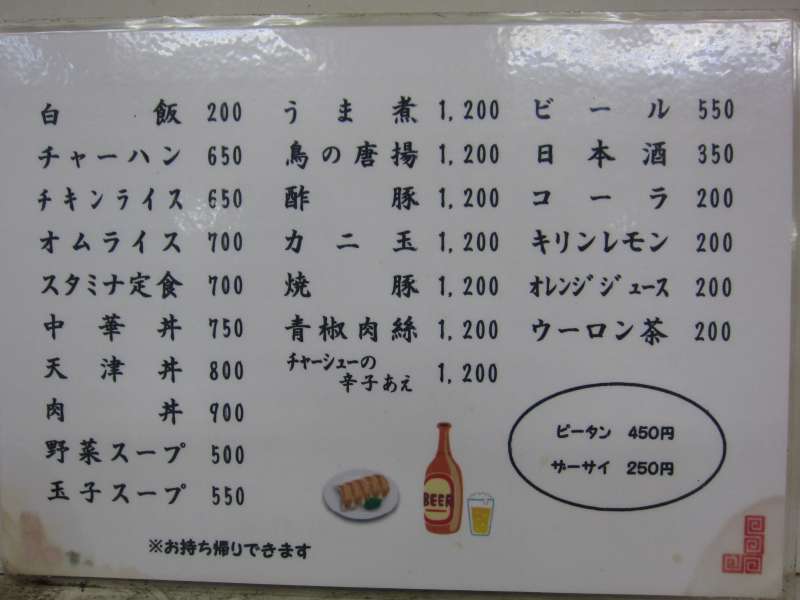 白飯 200
チャーハン 650
チキンライス 650
オムライス 700
スタミナ定食 700
中華丼 750
天津丼 800
肉丼 900
野菜スープ 500
玉子スープ 550
※お持ち帰りできます
うま煮 1,200
鳥の唐揚 1,200
酢豚 1,200
カニ玉 1,200
焼豚 1,200
青椒肉絲 1,200
チャーシューの
辛子あえ 1,200
BEER
ビール 550
日本酒 350
コーラ 200
キリンレモン 200
オレンジジュース 200
ウーロン茶 200
ピータン 450円
ザーサイ 250円